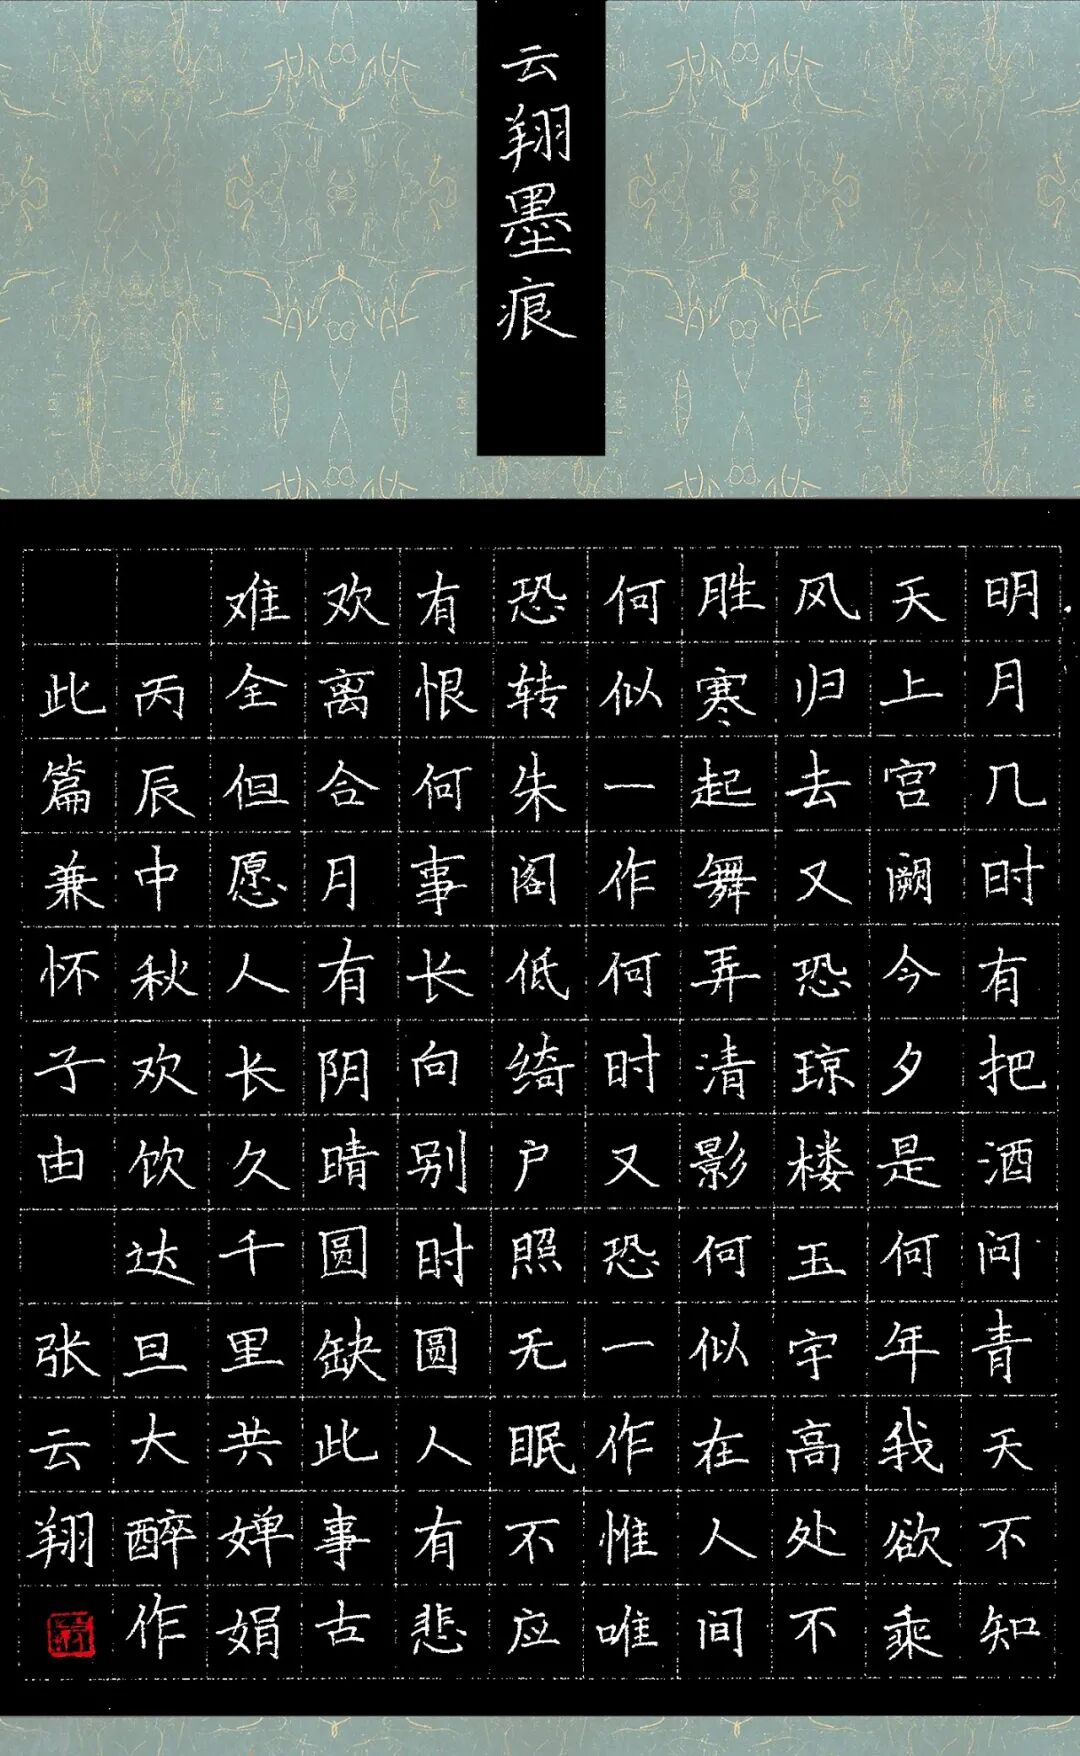 云翔墨痕
明月几时有把酒问青天不知
天上宫阙今夕是何年我欲乘
风归去又恐琼楼玉宇高处不
胜寒起舞弄清影何似在人间
何似一作何时又恐一作惟唯
恐转朱阁低绮户照无眠不应
有恨何事长向别时圆人有悲
欢离合月有阴晴圆缺此事古
难全但愿人长久千里共婵娟
丙辰中秋欢饮达旦大醉作
此篇兼怀子由 张云翔